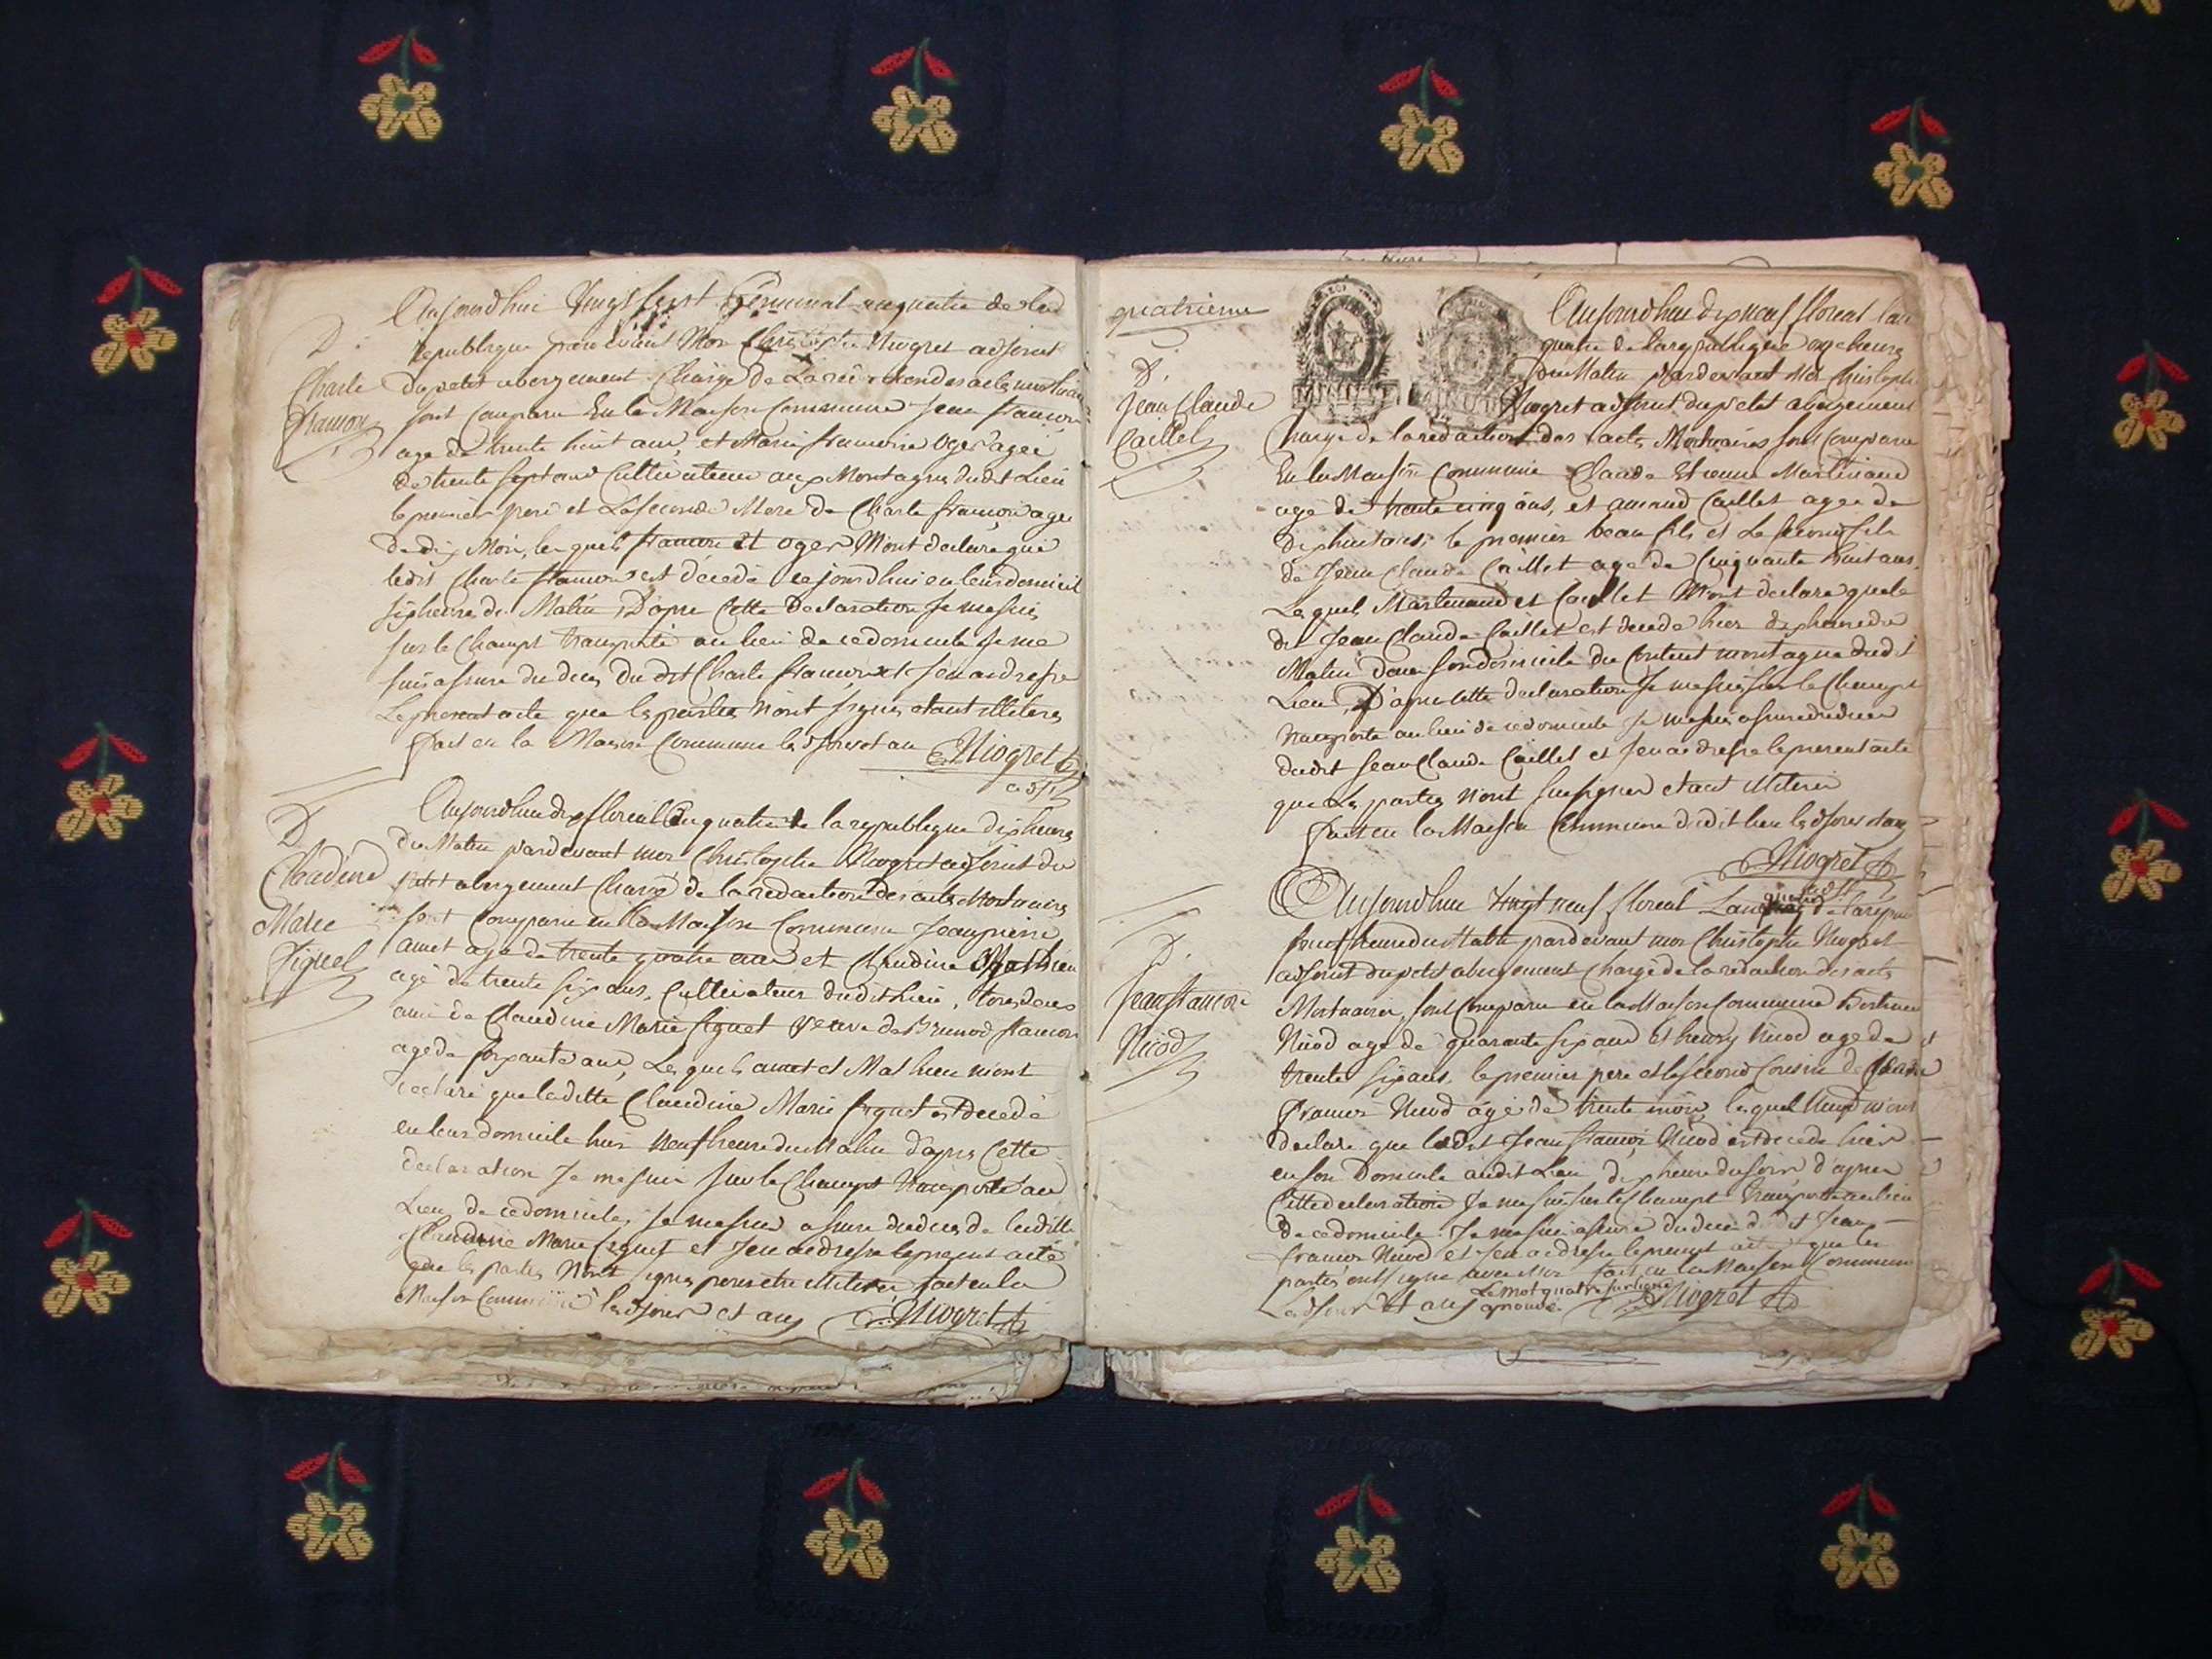 D.
Charle
françois
Aujourdhui Vingt sept Germinal an quatre de la
republique pardevant Moi Christophe Niogret adjoint
du petit abergement Chargé de La redaction des actes mortuaires
sont Comparu En la Maison Commune Jean françois
agé de trente huit ans, et Marie francoise oger agée
de trente sept ans Cultivateur aux Montagnes dudit Lieu
le premier pere et La seconde Mere de Charle françois agé
de dix Mois, les quels françois et oger M'ont declaré que
ledit Charle françois est décedé cejourdhui en leur domicil
six heures du Matin, D'apre Cette Declaration Je me suis
sur le Champt transporté au lieu de ce domicile Je me
suis assuré du deces du dit Charle françois et J'en ai dressé
Le present acte que les parties n'ont signés etant illiteres
fait en la Maison Commune les jour et an Niogret
adjt
D
Claudine
Marie
Figuet
Aujourdhui dix floreal an quatre de la republique dix heures
du Matin pardevant moi Christophe Niogret adjoint du
petit abergement Chargé de la redaction des actes Mortuaires
sont Comparu en la Maison Commune Jean pierre
amet agé de trente quatre ans et Claudine Mathieu
agé de trente six ans, Cultivateur dudit lieu, tous deux
ami de Claudine Marie figuet veuve de Brunod francois
agé de soixante ans, Les quels amet et Mathieu m'ont
declaré que laditte Claudine Marie figuet est decedé
en leur domicile hier Neuf heure du Matin d'apres Cette
declaration Je me suis sur le Champt transporté au
Lieu de ce domicile, Je me suis assuré du deces de laditte
Claudine Marie figuet et J'en ai dressé le present acte
que les parties n'ont signés pour etre illiteres, fait en la
Maison Commune les jour et an Niogret
quatrieme
D.
Jean Claude
Caillet
Aujourdhui dix neuf floreal lan
quatre de la republique onze heures
du Matin pardevant Moi Christophe
Niogret adjoint du petit abergement
Chargé de la redaction des actes Mortuaires sont Comparu
En la Maison Commune Claude Etienne Martinand
agé de trente cinq ans, et amand Caillet agé de
dix huit ans, le premier beau fils et Le second fils
de Jean Claude Caillet agé de Cinquante huit ans.
Les quels Martinand et Caillet M'ont declaré que le
dit Jean Claude Caillet est decedé hier dix heures du
Matin dans son domicile du montagne dudit
Lieu, D'apre cette declaration Je me suis sur le Champt
transporté au lieu de ce domicile Je me suis assuré du deces
dudit Jean Claude Caillet et J'en ai dressé le present acte
que Les parties n'ont su signer etant illiteré
fait en la Maison Commune dudit lieu les jour et an
Niogret
adjt
D.
Jean francois
Nicod
Aujourdhui vingt neuf floreal Lan quatre de la repu
heure du Matin pardevant moi Christophe Niogret
adjoint du petit abergement Chargé de la redaction des actes
Mortuaires, sont Comparu en la Maison Commune
Nicod agé de quarante six ans et henry Nicod agé de
trente six ans, le premier pere et le second Cousin de Jean
francois Nicod agé de trente mois, les quel Nicod m'ont
declaré que ledit Jean francois Nicod est decedé hier
en son Domicile audit Lieu dix heure du soir d'apres
Cette declaration Je me suis sur le Champt transporté au lieu
de ce domicile Je me suis assuré du deces dudit Jean
francois Nicod et J'en ai dressé le present acte que les
parties ont signé avec Moi fait en la Maison Commune
Les Jour et an Le mot quatre surligne aprouvé. Niogret